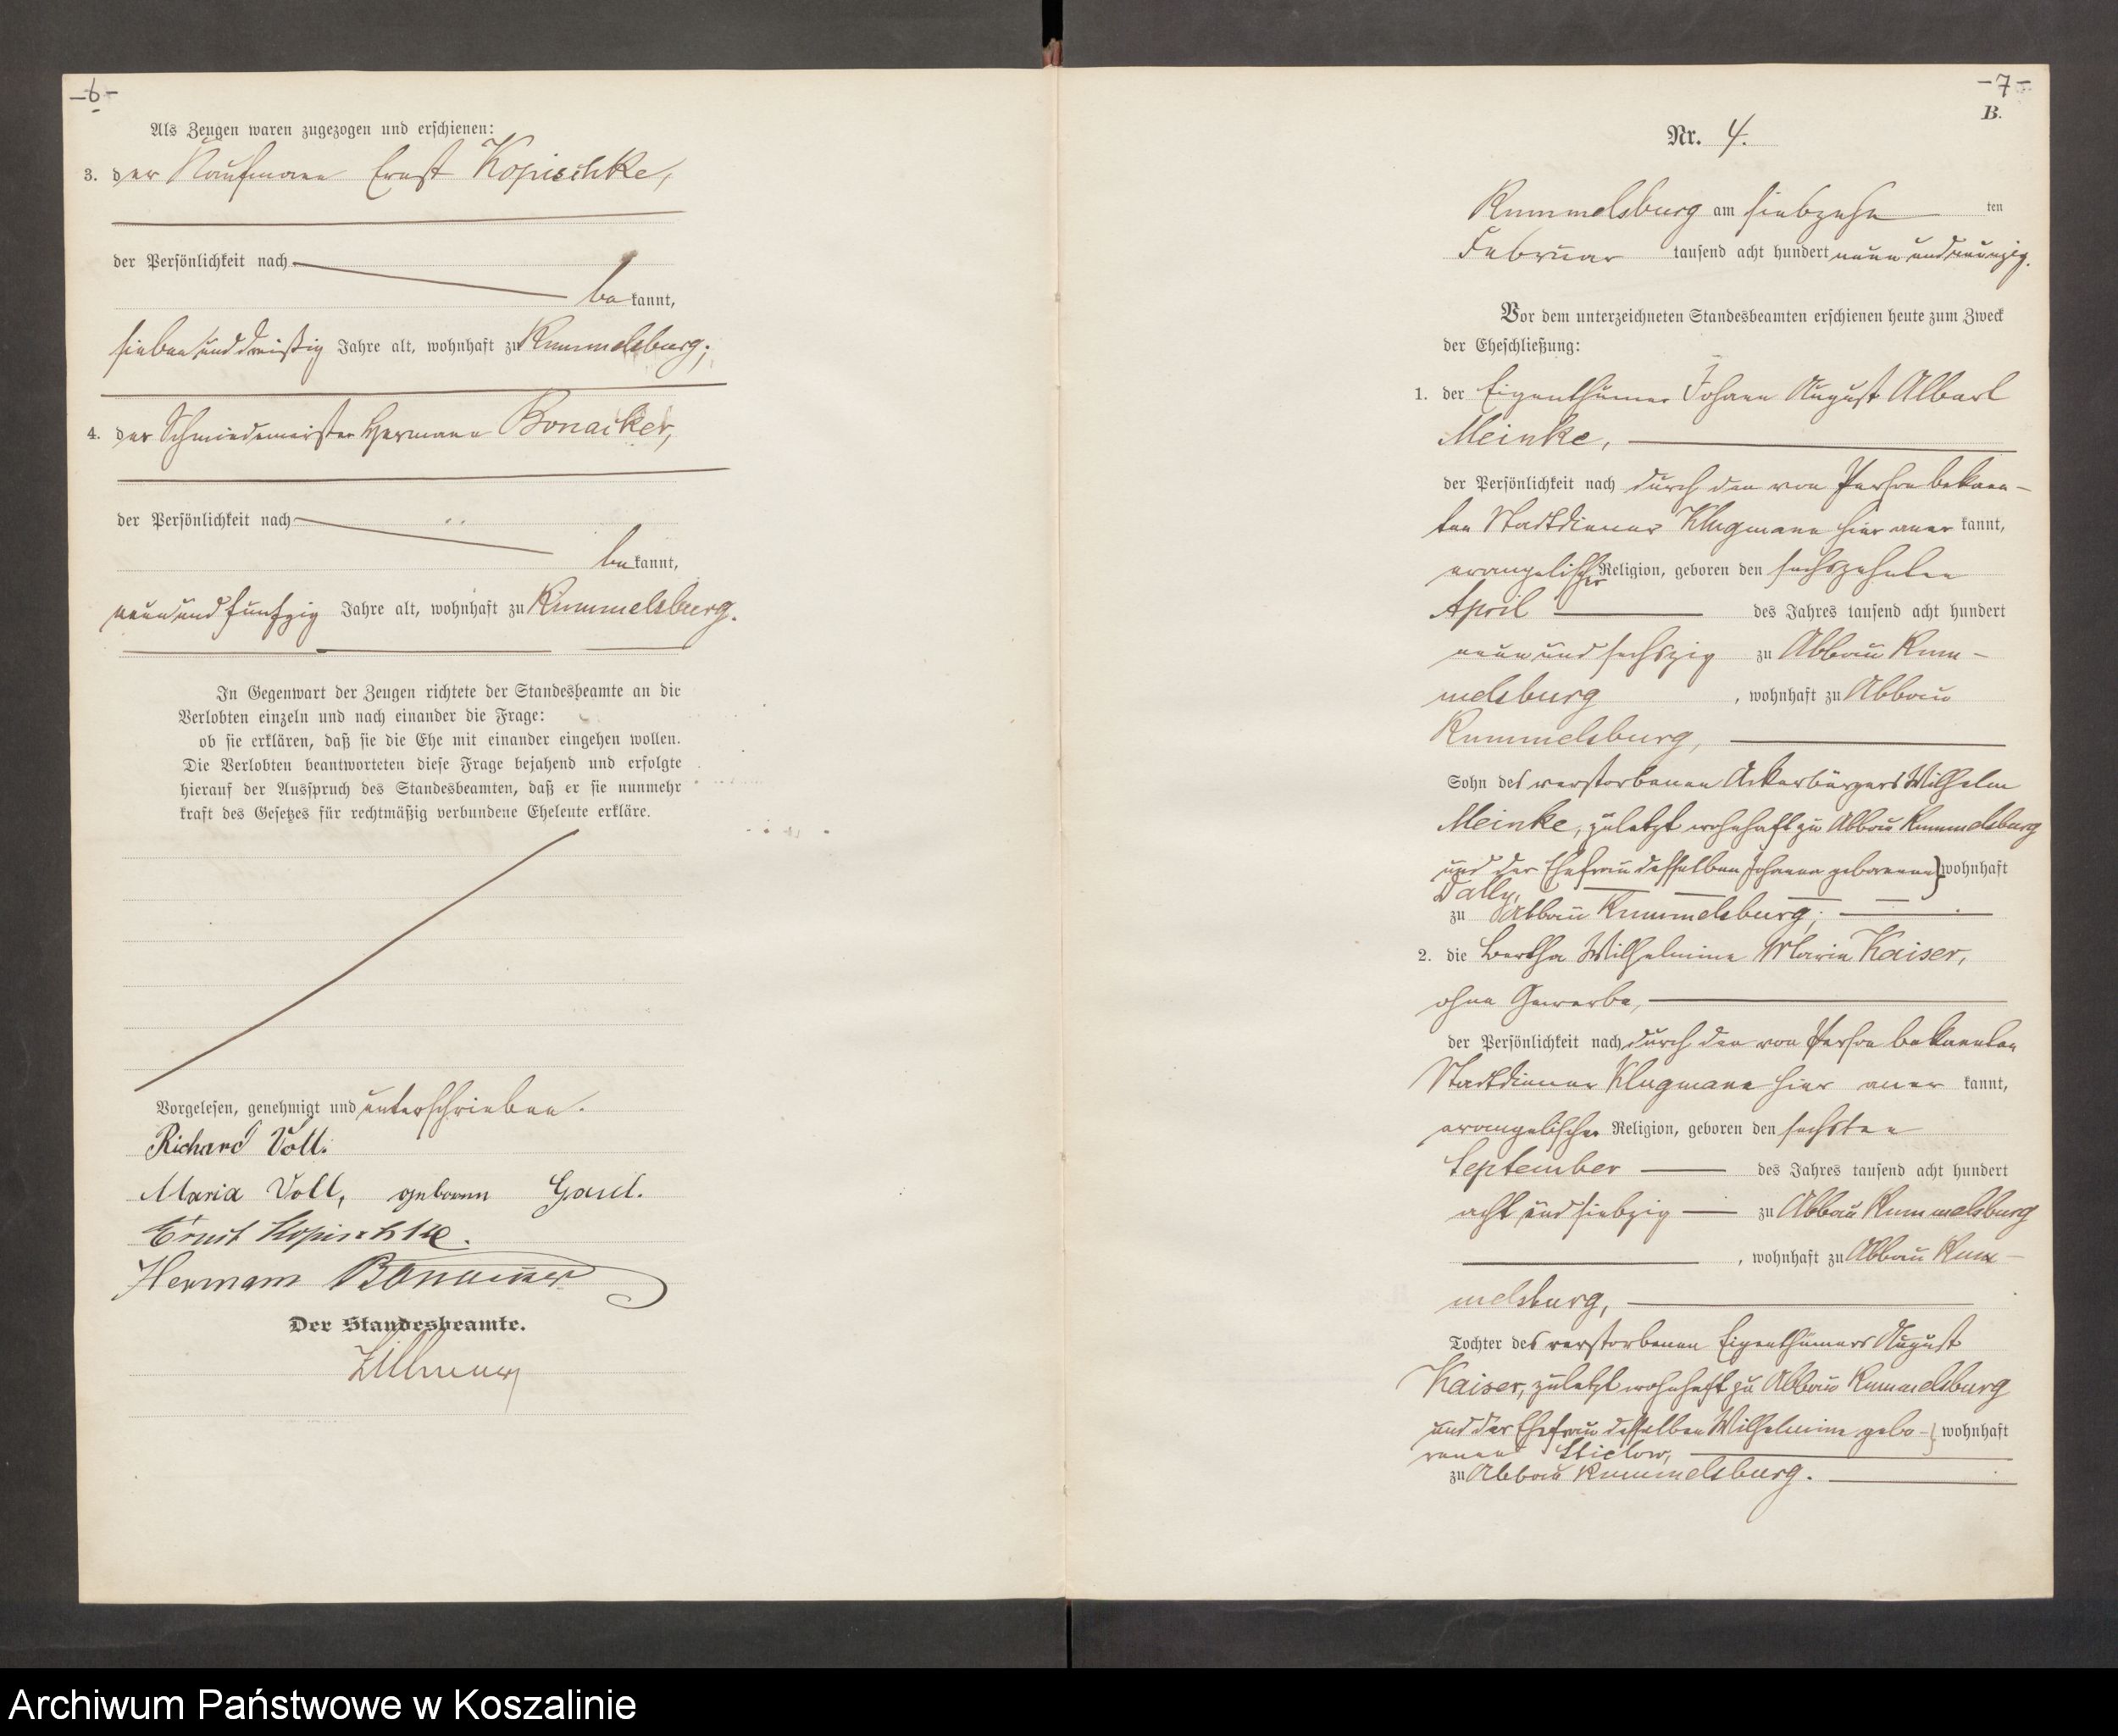 –6–
Als Zeugen waren zugezogen und erschienen:
3. der Kaufmann Ernst Kopischke,
der Persönlichkeit nach
be kannt,
sieben und dreißig Jahre alt, wohnhaft zu Rummelsburg;
4. der Schmiedemeister Hermann Bonacker,
der Persönlichkeit nach
be kannt,
neun und funfzig Jahre alt, wohnhaft zu Rummelsburg.
In Gegenwart der Zeugen richtete der Standesbeamte an die
Verlobten einzeln und nach einander die Frage:
ob sie erklären, daß sie die Ehe mit einander eingehen wollen.
Die Verlobten beantworteten diese Frage bejahend und erfolgte
hierauf der Ausspruch des Standesbeamten, daß er sie nunmehr
kraft des Gesetzes für rechtmäßig verbundene Eheleute erkläre.
Vorgelesen, genehmigt und unterschrieben.
Richard Voll.
Maria Voll, geboren
Ernst Kopischke.
Hermann Bonacker
Der Standesbeamte.
–7–
B.
Nr. 4.
Rummelsburg am siebzehn ten
Februar tausend acht hundert neun und neunzig.
Vor dem unterzeichneten Standesbeamten erschienen heute zum Zweck
der Eheschließung:
1. der Eigenthümer Johann August Albert
Meinke,
der Persönlichkeit nach durch den von Person bekann-
ten Stadtdiener Klugmann hier aner kannt,
evangelischer Religion, geboren den sechszehnten
April des Jahres tausend acht hundert
neun und sechszig zu Abbau Rum-
melsburg , wohnhaft zu Abbau
Rummelsburg,
Sohn des verstorbenen Ackerbürgers Wilhelm
Meinke, zuletzt wohnhaft zu Abbau Rummelsburg
und der Ehefrau desselben Johanna geborenen } wohnhaft
Dally,
zu Abbau Rummelsburg;
2. die Bertha Wilhelmine Marie Kaiser,
ohne Gewerbe,
der Persönlichkeit nach durch den von Person bekannten
Stadtdiener Klugmann hier aner kannt,
evangelischer Religion, geboren den sechsten
September des Jahres tausend acht hundert
acht und siebzig zu Abbau Rummelsburg
, wohnhaft zu Abbau Rum-
melsburg,
Tochter des verstorbenen Eigenthümers August
Kaiser, zuletzt wohnhaft zu Abbau Rummelsburg
und der Ehefrau desselben Wilhelmine gebo- } wohnhaft
renen
zu Abbau Rummelsburg.
Archiwum Państwowe w Koszalinie